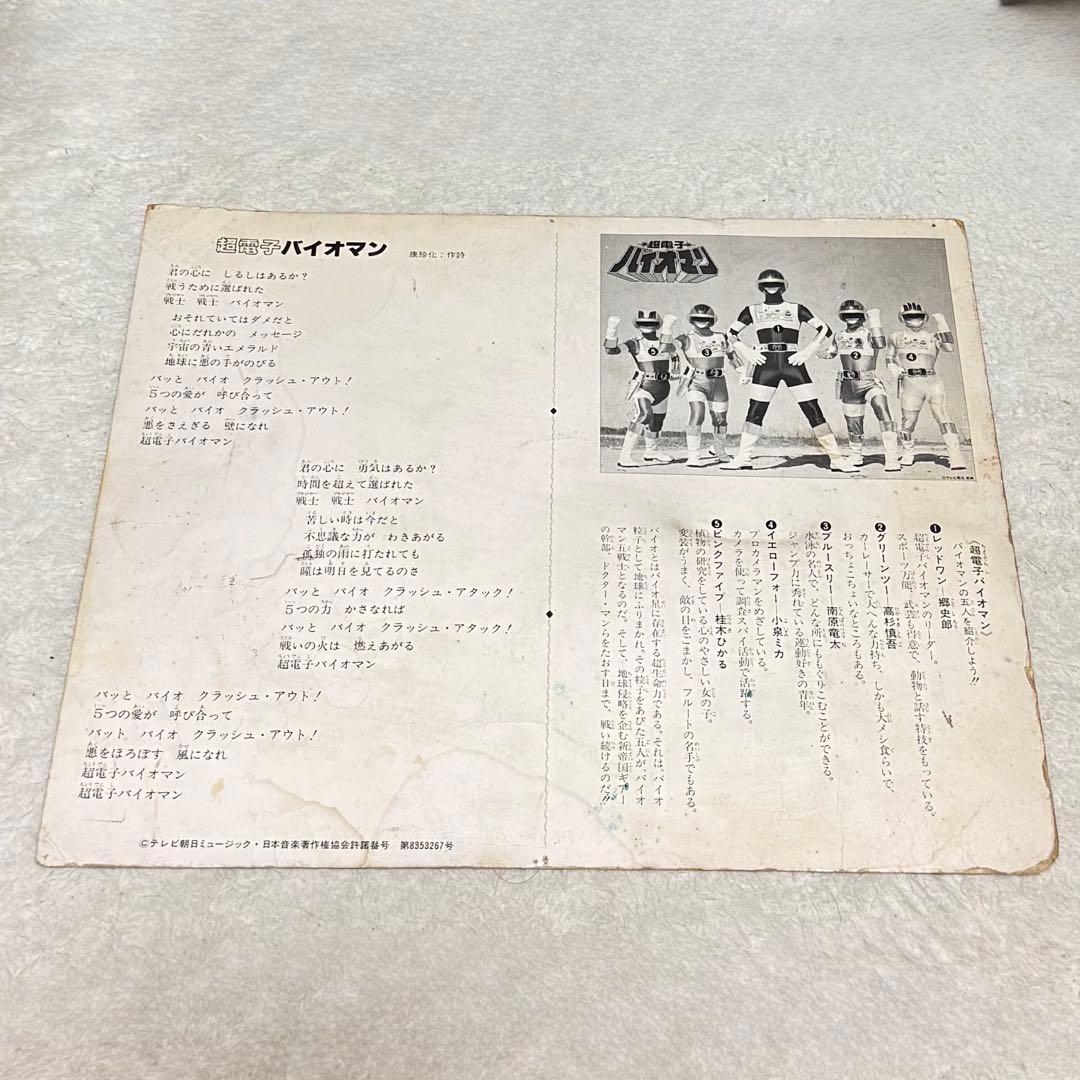 超電子バイオマン
康珍化:作詩
君の心に しるしはあるか?
戦うために選ばれた
戦士 戦士 バイオマン
おそれていてはダメだと
心にだれかの メッセージ
宇宙の青いエメラルド
地球に悪の手がのびる
バッと バイオ クラッシュ・アウト!
5つの愛が 呼び合って
バッと バイオ クラッシュ・アウト!
悪をさえぎる 壁になれ
超電子バイオマン
君の心に 勇気はあるか?
時間を超えて選ばれた
戦士 戦士 バイオマン
苦しい時は今だと
不思議な力が わきあがる
孤独の雨に打たれても
瞳は明日を見てるのさ
バッと バイオ クラッシュ・アタック!
5つの力 かさなれば
バッと バイオ クラッシュ・アタック!
戦いの火は 燃えあがる
超電子バイオマン
バッと バイオ クラッシュ・アウト!
5つの愛が 呼び合って
バット バイオ クラッシュ・アウト!
悪をほろぼす 風になれ
超電子バイオマン
超電子バイオマン
©テレビ朝日ミュージック・日本音楽著作権協会許諾番号 第8353267号
超電子
バイオマン
5
3
1
2
4
©テレビ朝日・東映
《超電子バイオマン》
バイオマンの五人を紹介しよう!!
❶レッドワン―郷史郎
超電子バイオマンのリーダー。
スポーツ万能、武芸も得意で、動物と話す特技をもっている。
❷グリーンツー―高杉慎吾
カーレーサーで大へんな力持ち、しかも大メシ食らいで、
おっちょこちょいなところもある。
❸ブルースリー―南原竜太
水泳の名人で、どんな所にももぐりこむことができる。
ジャンプ力に秀れている運動好きの青年。
❹イエローフォー―小泉ミカ
プロカメラマンをめざしている。
カメラを使って調査スパイ活動で活躍する。
❺ピンクファイブ―桂木ひかる
植物の研究をしている心のやさしい女の子。
変装がうまく、敵の目をごまかし、フルートの名手でもある。
バイオとはバイオ星に存在する超生命力である。それは、バイオ
粒子として地球にふりまかれ、その粒子をあびた五人が、バイオ
マン五戦士となるのだ。そして、地球侵略を企む新帝国ギアー
の幹部、ドクター・マンらをたおす日まで、戦い続けるのだ!!